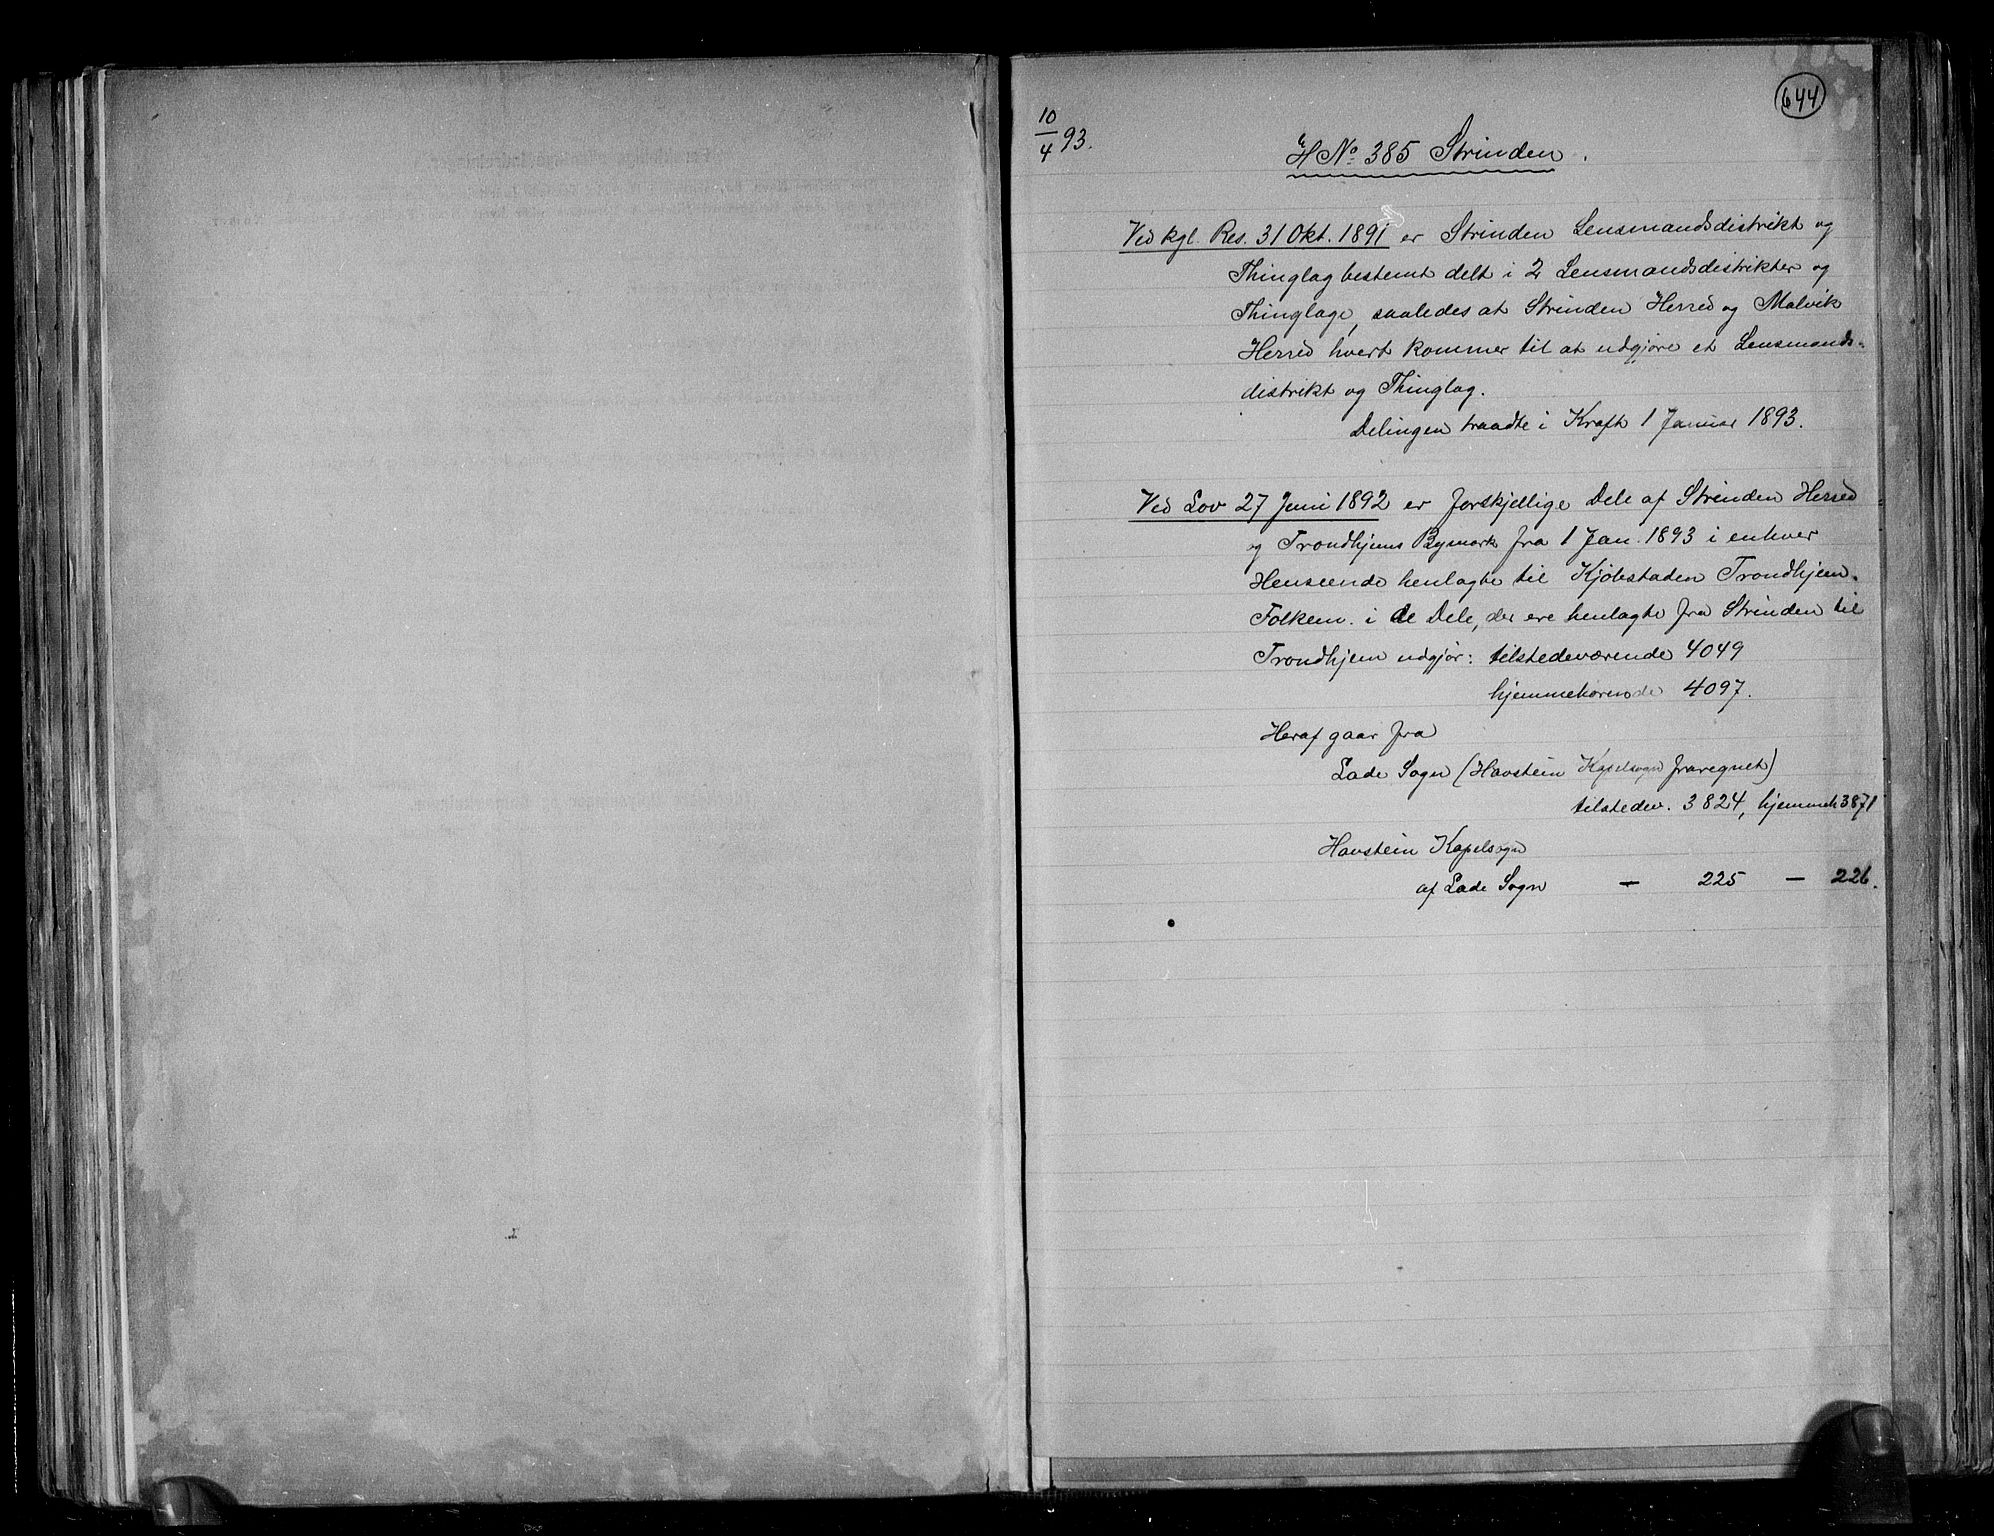 644
10/4 93.
H No 385 Strinden.
Ved kgl. Res. 31 Okt. 1891 er Strinden Lensmandsdistrikt og
Thinglag bestemt delt i 2 Lensmandsdistrikter og
Thinglage, saaledes at Strinden Herred og Malvik
Herred hvert kommer til at udgjøre et Lensmands-
distrikt og Thinglag.
Delingen traadte i Kraft 1 Januar 1893.
Ved Lov 27 Juni 1892 er forskjellige Dele af Strinden Herred
og Trondhjems Bymark fra 1 Jan. 1893 i enhver
Henseende henlagte til Kjøbstaden Trondhjem.
Folkem. i de Dele, der ere henlagte fra Strinden til
Trondhjem udgjør: tilstedeværende 4049
hjemmehørende 4097.
Heraf gaar fra
Lade Sogn (Havstein Kapelsogn fraregnet)
tilstedev. 3824, hjemmeh 3871
Havstein Kapelsogn
af Lade Sogn — 225 — 226.